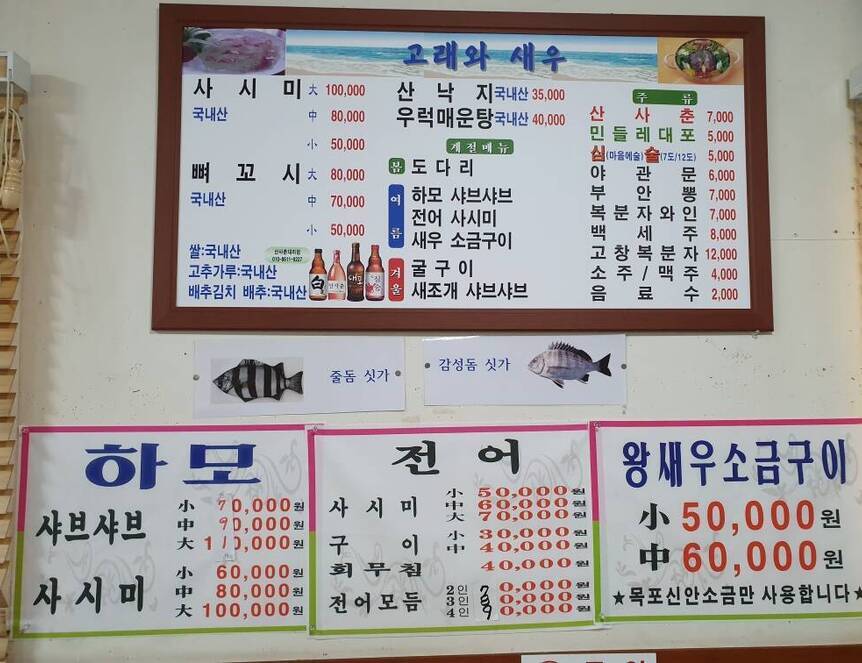 고래와 새우
사 시 미 大 100,000
국내산 中 80,000
小 50,000
뼈 꼬 시 大 80,000
국내산 中 70,000
小 50,000
쌀:국내산
고추가루:국내산
배추김치 배추:국내산
산 낙 지 국내산 35,000
우럭매운탕 국내산 40,000
계절메뉴
봄 도 다 리
여름 하모 샤브샤브
전어 사시미
새우 소금구이
겨울 굴 구 이
새조개 샤브샤브
주 류
산 사 춘 7,000
민들레대포 5,000
심(마음에술)술(7도/12도) 5,000
야 관 문 6,000
부 안 뽕 7,000
복분자와인 7,000
백 세 주 8,000
고창복분자 12,000
소주/맥주 4,000
음 료 수 2,000
줄돔 싯가
감성돔 싯가
하 모
샤브샤브 小 70,000원
中 90,000원
大 110,000원
사 시 미 小 60,000원
中 80,000원
大 100,000원
전 어
사 시 미 小 50,000원
中 60,000원
大 70,000원
구 이 小 30,000원
中 40,000원
회무침 40,000원
전어모듬 2인 0,000원
3인 0,000원
4인 0,000원
왕새우소금구이
小 50,000원
中 60,000원
★목포신안소금만 사용합니다★